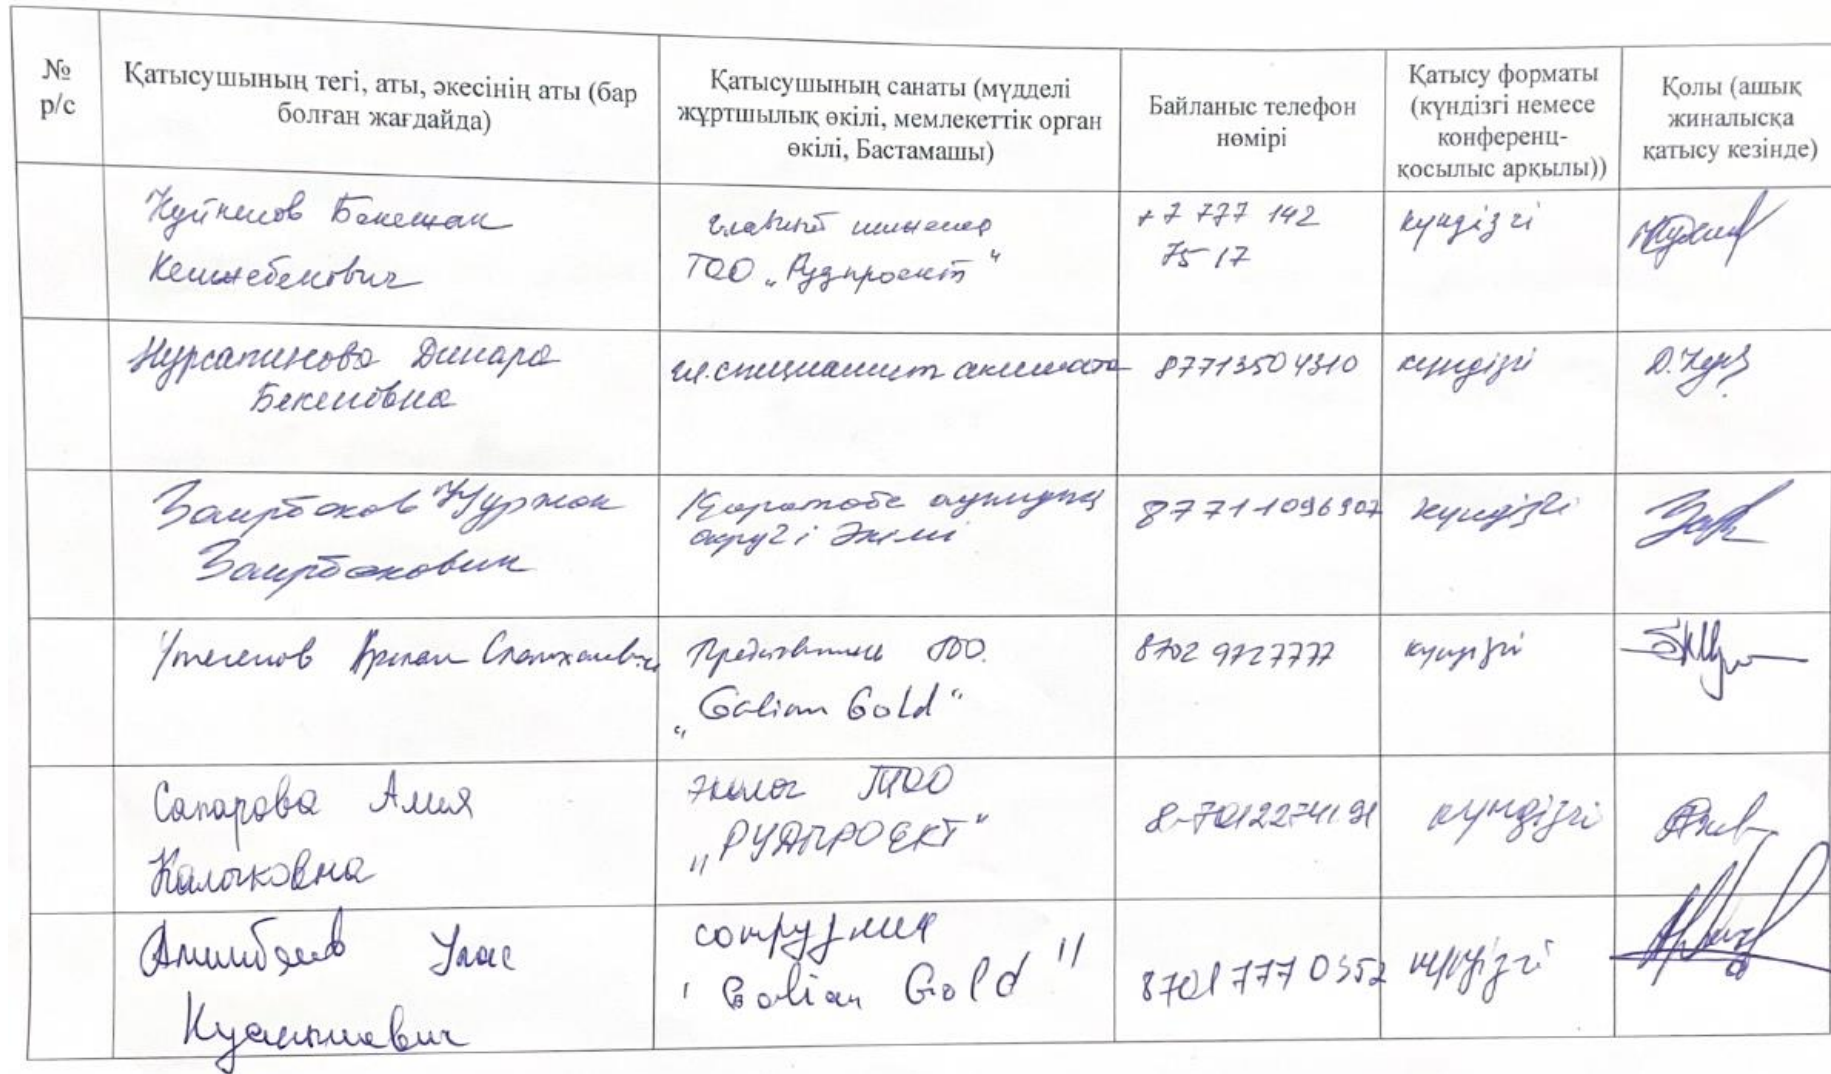 №
р/с
Қатысушының тегі, аты, әкесінің аты (бар
болған жағдайда)
Қатысушының санаты (мүдделі
жұртшылық өкілі, мемлекеттік орган
өкілі, Бастамашы)
Байланыс телефон
нөмірі
Қатысу форматы
(күндізгі немесе
конференц-
қосылыс арқылы))
Қолы (ашық
жиналысқа
қатысу кезінде)
Кешинебекович
главный инженер
ТОО „Рудпроект"
+7 777 142
75 17
күндізгі
Нурсапинова Динара
Бекеновна
гл.специалист акимата
87713504310
күндізгі
Д.Нур
Заирбеков Нуржан
Заирбекович
Қаратөбе ауылдық
округі әкімі
87711096907
күндізгі
Утегенов
Представитель ТОО.
„Galian Gold"
8702 9727777
күндізгі
Сапарова Алия
Калыковна
эколог ТОО
„РУДПРОЕКТ"
күндізгі
Улас
сотрудник
"Galian Gold"
87017770352
күндізгі